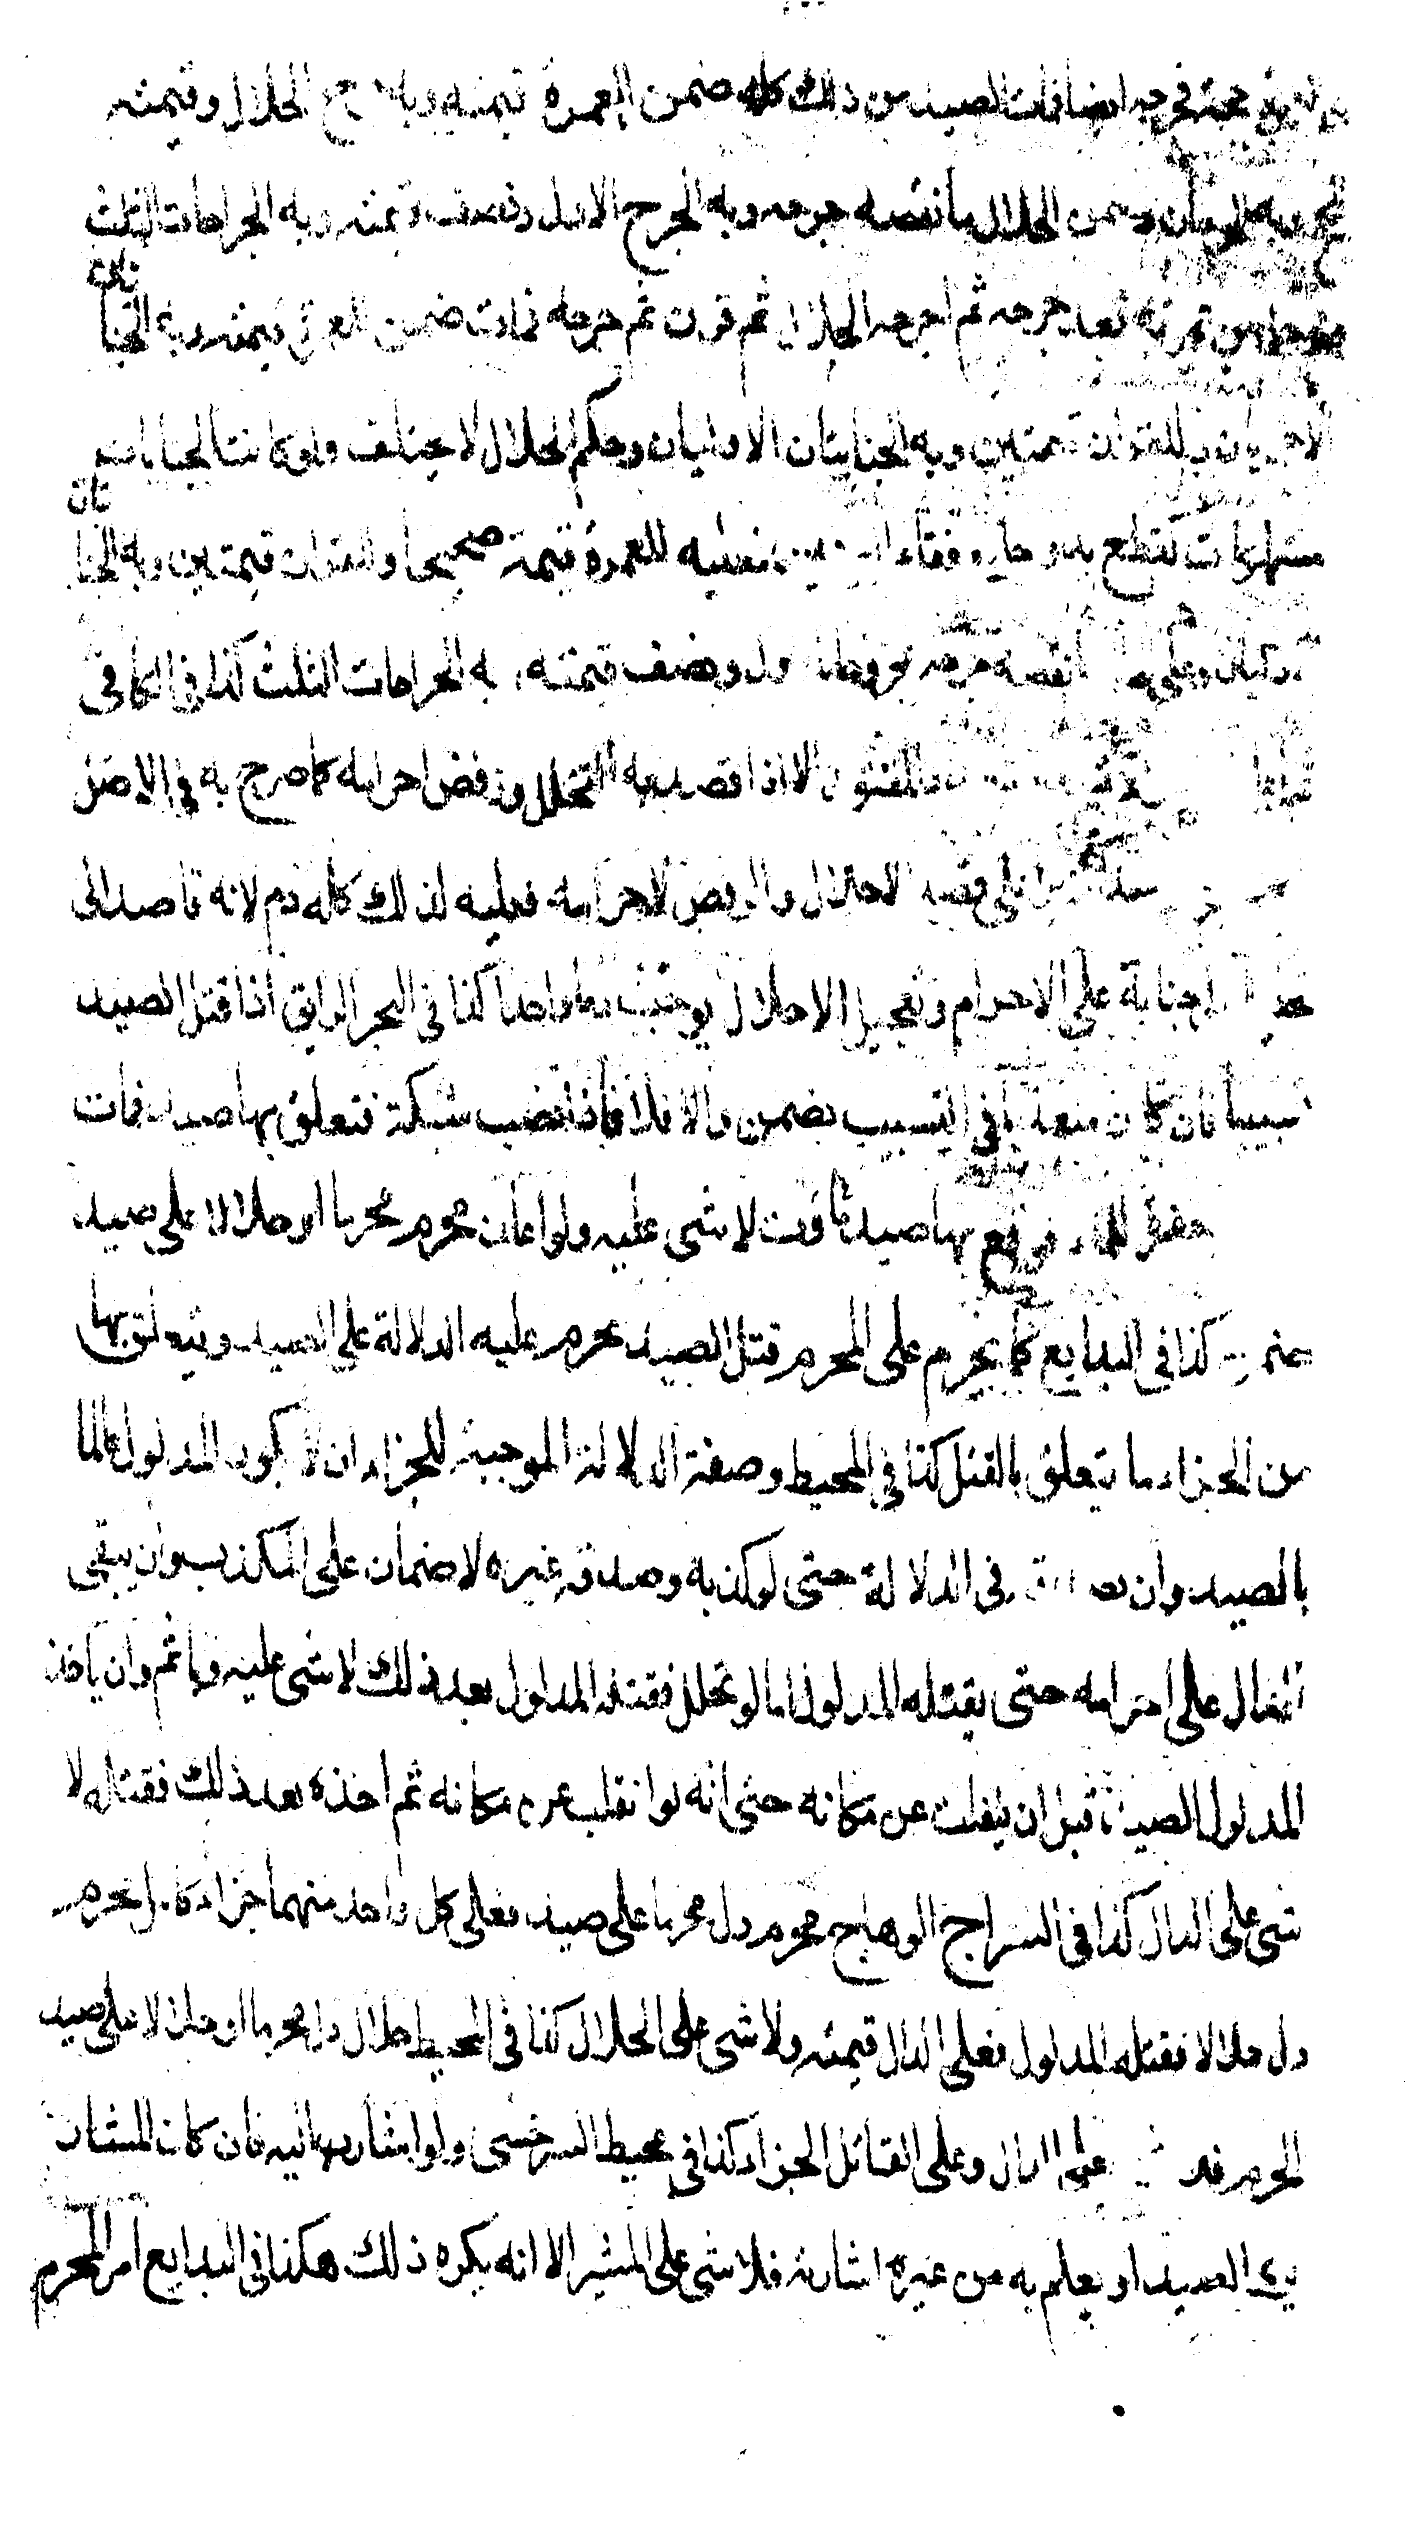 حجة فجرحه ايضا فمات الصيد من ذلك كله ضمن للعمرة قيمته وبه جرح الحلال وقيمته
للحج وبه الجرحان وضمن الحلال ما نقصه جرحه وبه الجرح الاول ونصف قيمته وبه الجراحات الثلث
من عمرته بعد جرحه ثم جرحه الحلال ثم قرن ثم جرحه فمات ضمن للعمرة قيمته وبه الجنايتان
الاخريان وللقران قيمتين وبه الجنايتان الاوليان وحكم الحلال لا يختلف ولو كانت الجنايات
مستهلكات كقطع يد ورجل وفقاء فعليه للعمرة قيمته صحيحا وللقران قيمتين وبه الجنايتان
الاوليان وعلى ما نقصه جرحه مجروحا الاول ونصف قيمته وبه الجراحات الثلث كذا في الكافي
المقتول الا اذا قصد به التحلل ورفض احرامه كما صرح به في الاصل
على قصد الاحلال والرفض لاحرامه فعليه لذلك كله دم لانه قاصد الى
لجناية على الاحرام وتعجيل الاحلال يوجب دما واحدا كذا في البحر الرايق اذا قتل الصيد
تسبيبا فان كان متعديا في التسبيب يضمن والا فلا فاذا نصب شبكة فتعلق بها صيد فمات
حفرة للماء فوقع بها صيد فمات لا شى عليه ولو اعان محرم محرما او حلالا على صيد
ضمن كذا في البدايع كما يحرم على المحرم قتل الصيد يحرم عليه الدلالة على الصيد ويتعلق بها
من الجزاء ما يتعلق بالقتل كذا في المحيط وصفة الدلالة الموجبة للجزاء ان لا يكون المدلول عالما
بالصيد وان يصدقه في الدلالة حتى لو كذبه وصدق غيره لا ضمان على المكذب وان يبقى
الدال على احرامه حتى يقتله المدلول اما لو تحلل فقتله المدلول بعد ذلك لا شى عليه وياثم وان ياخذ
المدلول الصيد قبل ان ينفلت عن مكانه حتى انه لو انفلت عن مكانه ثم اخذه بعد ذلك فقتله لا
شى على الدال كذا في السراج الوهاج محرم دل محرما على صيد فعلى كل واحد منهما جزاء كامل محرم
دل حلالا فقتله المدلول فعلى الدال قيمته ولا شى على الحلال كذا في المحيط حلال دل محرما او حلالا على صيد
الحرم فلا شى على الدال وعلى القاتل الجزاء كذا في محيط السرخسى ولو اشار بها اليه فان كان المشار
يرى الصيد او يعلم به من غيره اشارته فلا شى على المشير الا انه يكره ذلك هكذا في البدايع امر المحرم